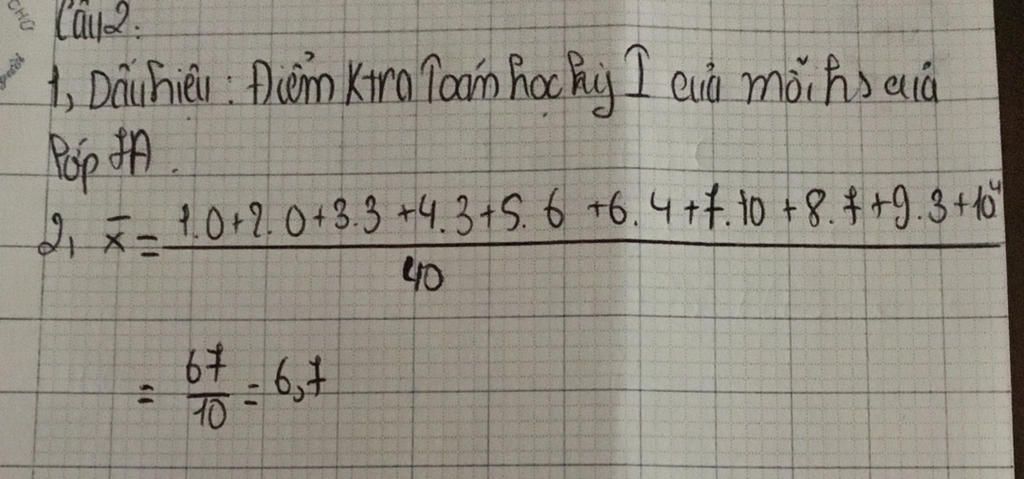 Câu2:
1, Dấu hiệu : Điểm Ktra Toán học kỳ I của mỗi hs của
lớp 7A .
2, x̄ = 1.0+2.0+3.3+4.3+5.6+6.4+7.10+8.7+9.3+10⁴
40
= 67/10 = 6,7